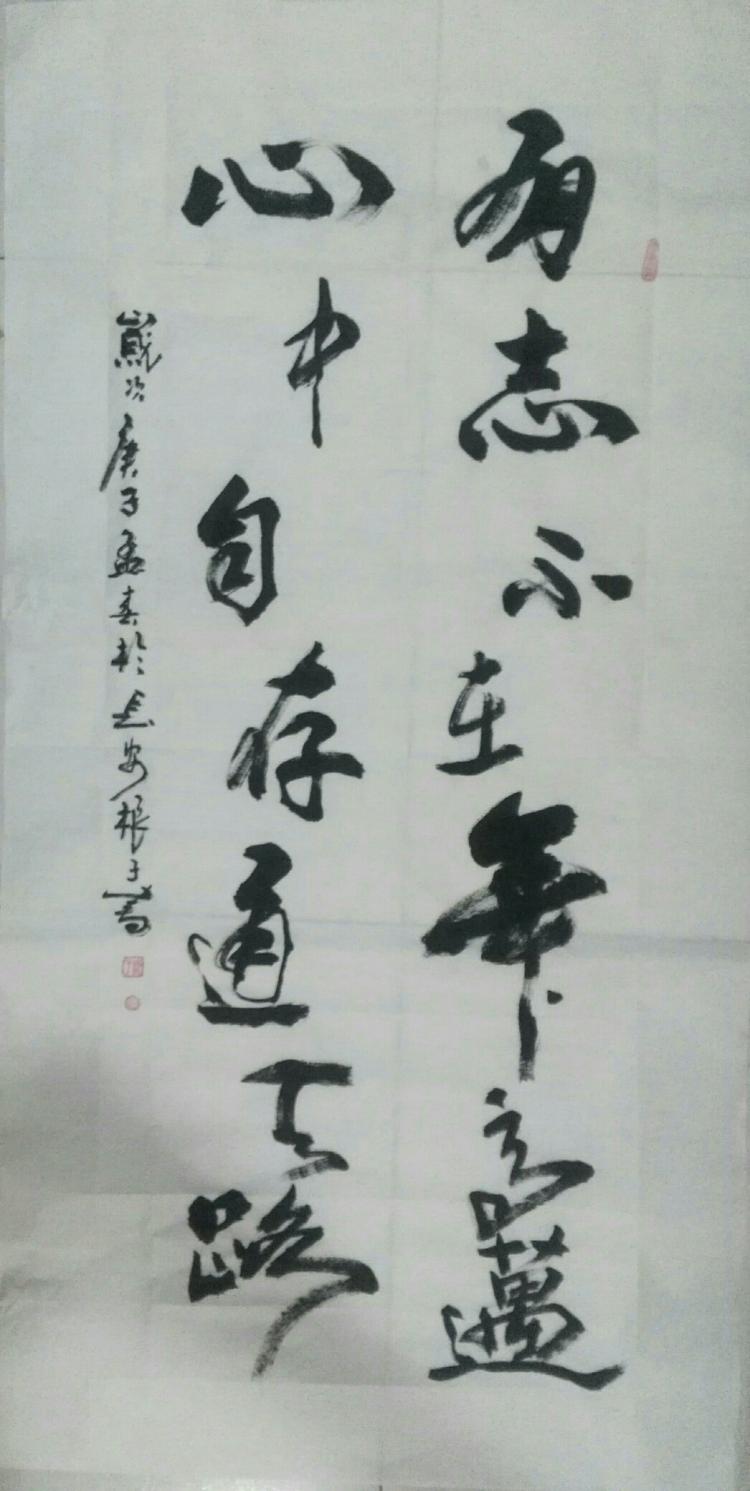 有志不在年高邁
心中自存通天路
歲次庚子孟春於長安